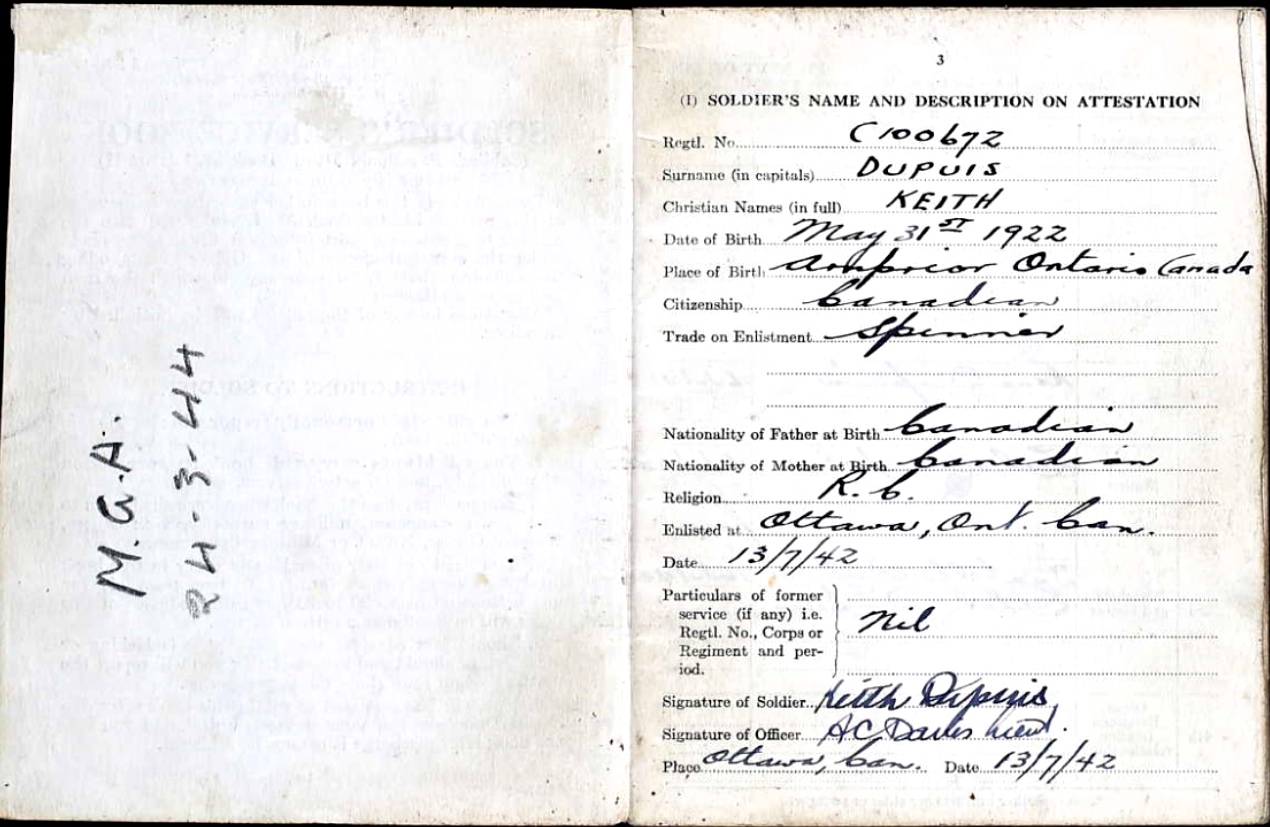 M.A.A.
24-3-44
3
(I) SOLDIER'S NAME AND DESCRIPTION ON ATTESTATION
Regtl. No. C100672
Surname (in capitals) DUPUIS
Christian Names (in full) KEITH
Date of Birth May 31ST 1922
Place of Birth Arnprior Ontario Canada
Citizenship Canadian
Trade on Enlistment Spinner
Nationality of Father at Birth Canadian
Nationality of Mother at Birth Canadian
Religion R.C.
Enlisted at Ottawa, Ont. Can.
Date 13/7/42
Particulars of former
service (if any) i.e.
Regtl. No., Corps or
Regiment and per-
iod.
Nil
Signature of Soldier Keith Dupuis
Signature of Officer AC Lieut.
Place Ottawa, Can. Date 13/7/42